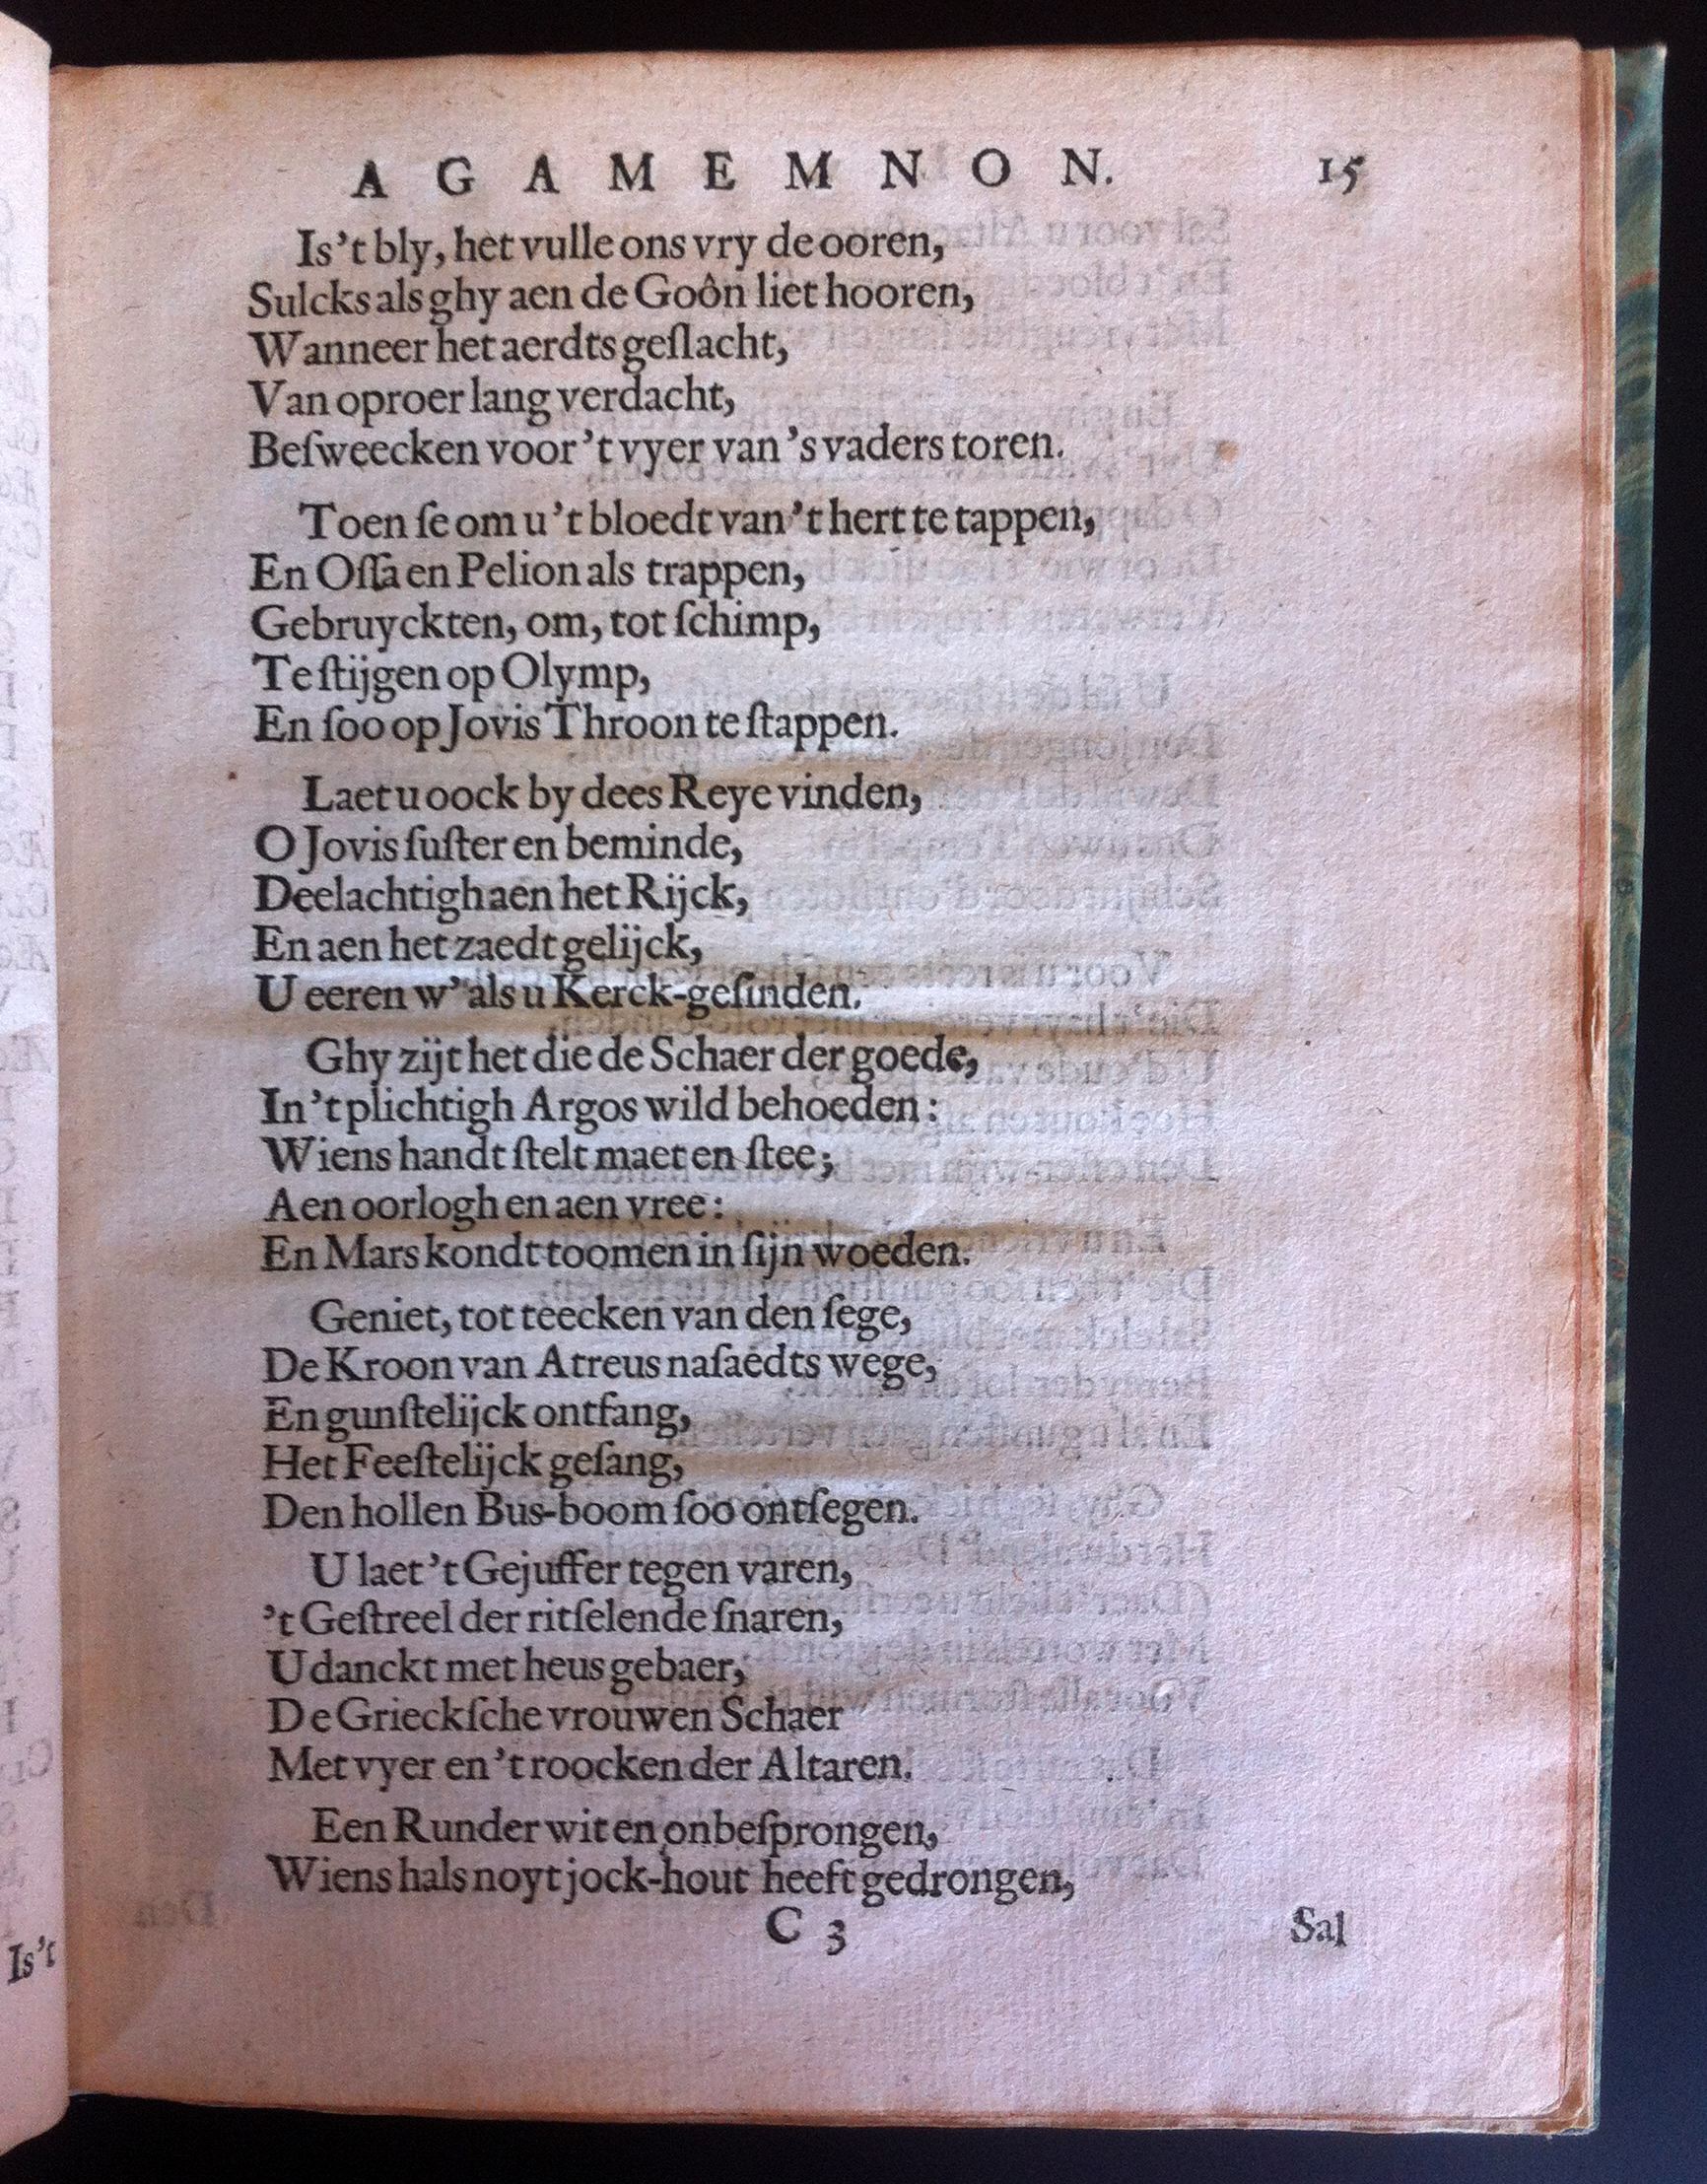 AGAMEMNON. 15
Is’t bly, het vulle ons vry de ooren,
Sulcks als ghy aen de Goôn liet hooren,
Wanneer het aerdts geſlacht,
Van oproer lang verdacht,
Beſweecken voor ’t vyer van ’s vaders toren.
Toen ſe om u ’t bloedt van ’t hert te tappen,
En Oſſa en Pelion als trappen,
Gebruyckten, om, tot ſchimp,
Te ſtijgen op Olymp,
En ſoo op Jovis Throon te ſtappen.
Laet u oock by dees Reye vinden,
O Jovis ſuſter en beminde,
Deelachtigh aen het Rijck,
En aen het zaedt gelijck,
U eeren w’ als u Kerck-geſinden.
Ghy zijt het die de Schaer der goede,
In ’t plichtigh Argos wild behoeden:
Wiens handt ſtelt maet en ſtee;
Aen oorlogh en aen vree:
En Mars kondt toomen in ſijn woeden.
Geniet, tot teecken van den ſege,
De Kroon van Atreus naſaedts wege,
En gunſtelijck ontfang,
Het Feeſtelijck geſang,
Den hollen Bus-boom ſoo ontſegen.
U laet ’t Gejuffer tegen varen,
’t Geſtreel der ritſelende ſnaren,
U danckt met heus gebaer,
De Grieckſche vrouwen Schaer
Met vyer en ’t roocken der Altaren.
Een Runder wit en onbeſprongen,
Wiens hals noyt jock-hout heeft gedrongen,
C 3 Sal
Is’t